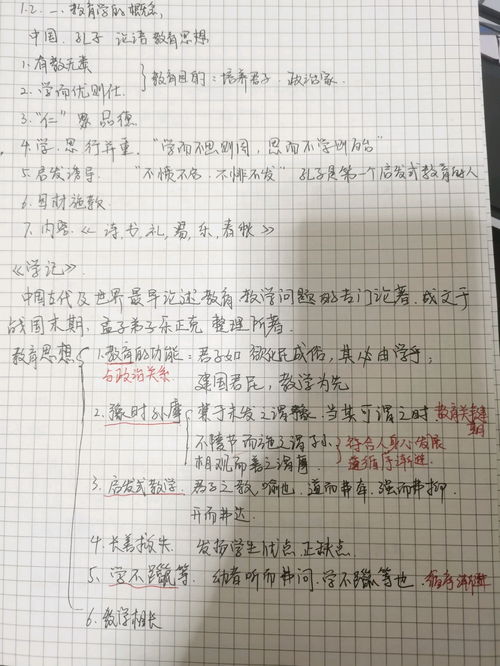 1.2. 一. 教育学的概念.
中国. 孔子 论语 教育思想
1. 有教无类
教育目的: 培养君子. 政治家.
2. 学而优则仕.
3. "仁" 品德
4. 学. 思. 行并重. "学而不思则罔, 思而不学则殆"
5. 启发诱导. "不愤不启, 不悱不发" 孔子是第一个启发式教育的人
6. 因材施教.
7. 内容 《诗, 书, 礼, 易, 乐, 春秋》
《学记》.
中国古代及世界最早论述教育. 教学问题的专门论著. 成文于
战国末期. 孟子弟子乐正克 整理所著.
教育思想
1. 教育的功能: 君子如欲化民成俗, 其必由学乎;
与政治关系. 建国君民, 教学为先
2. 豫时孙摩 禁于未发之谓豫. 当其可谓之时. 教育关键期
不陵节而施之谓孙 符合人身心发展
相观而善之谓摩 遵循序渐进.
3. 启发式教学. 君子之教, 喻也, 道而弗牵. 强而弗抑.
开而弗达.
4. 长善救失. 发扬学生优点. 正缺点.
5. 学不躐等. 幼者听而弗问. 学不躐等也. 循序渐进
6. 教学相长